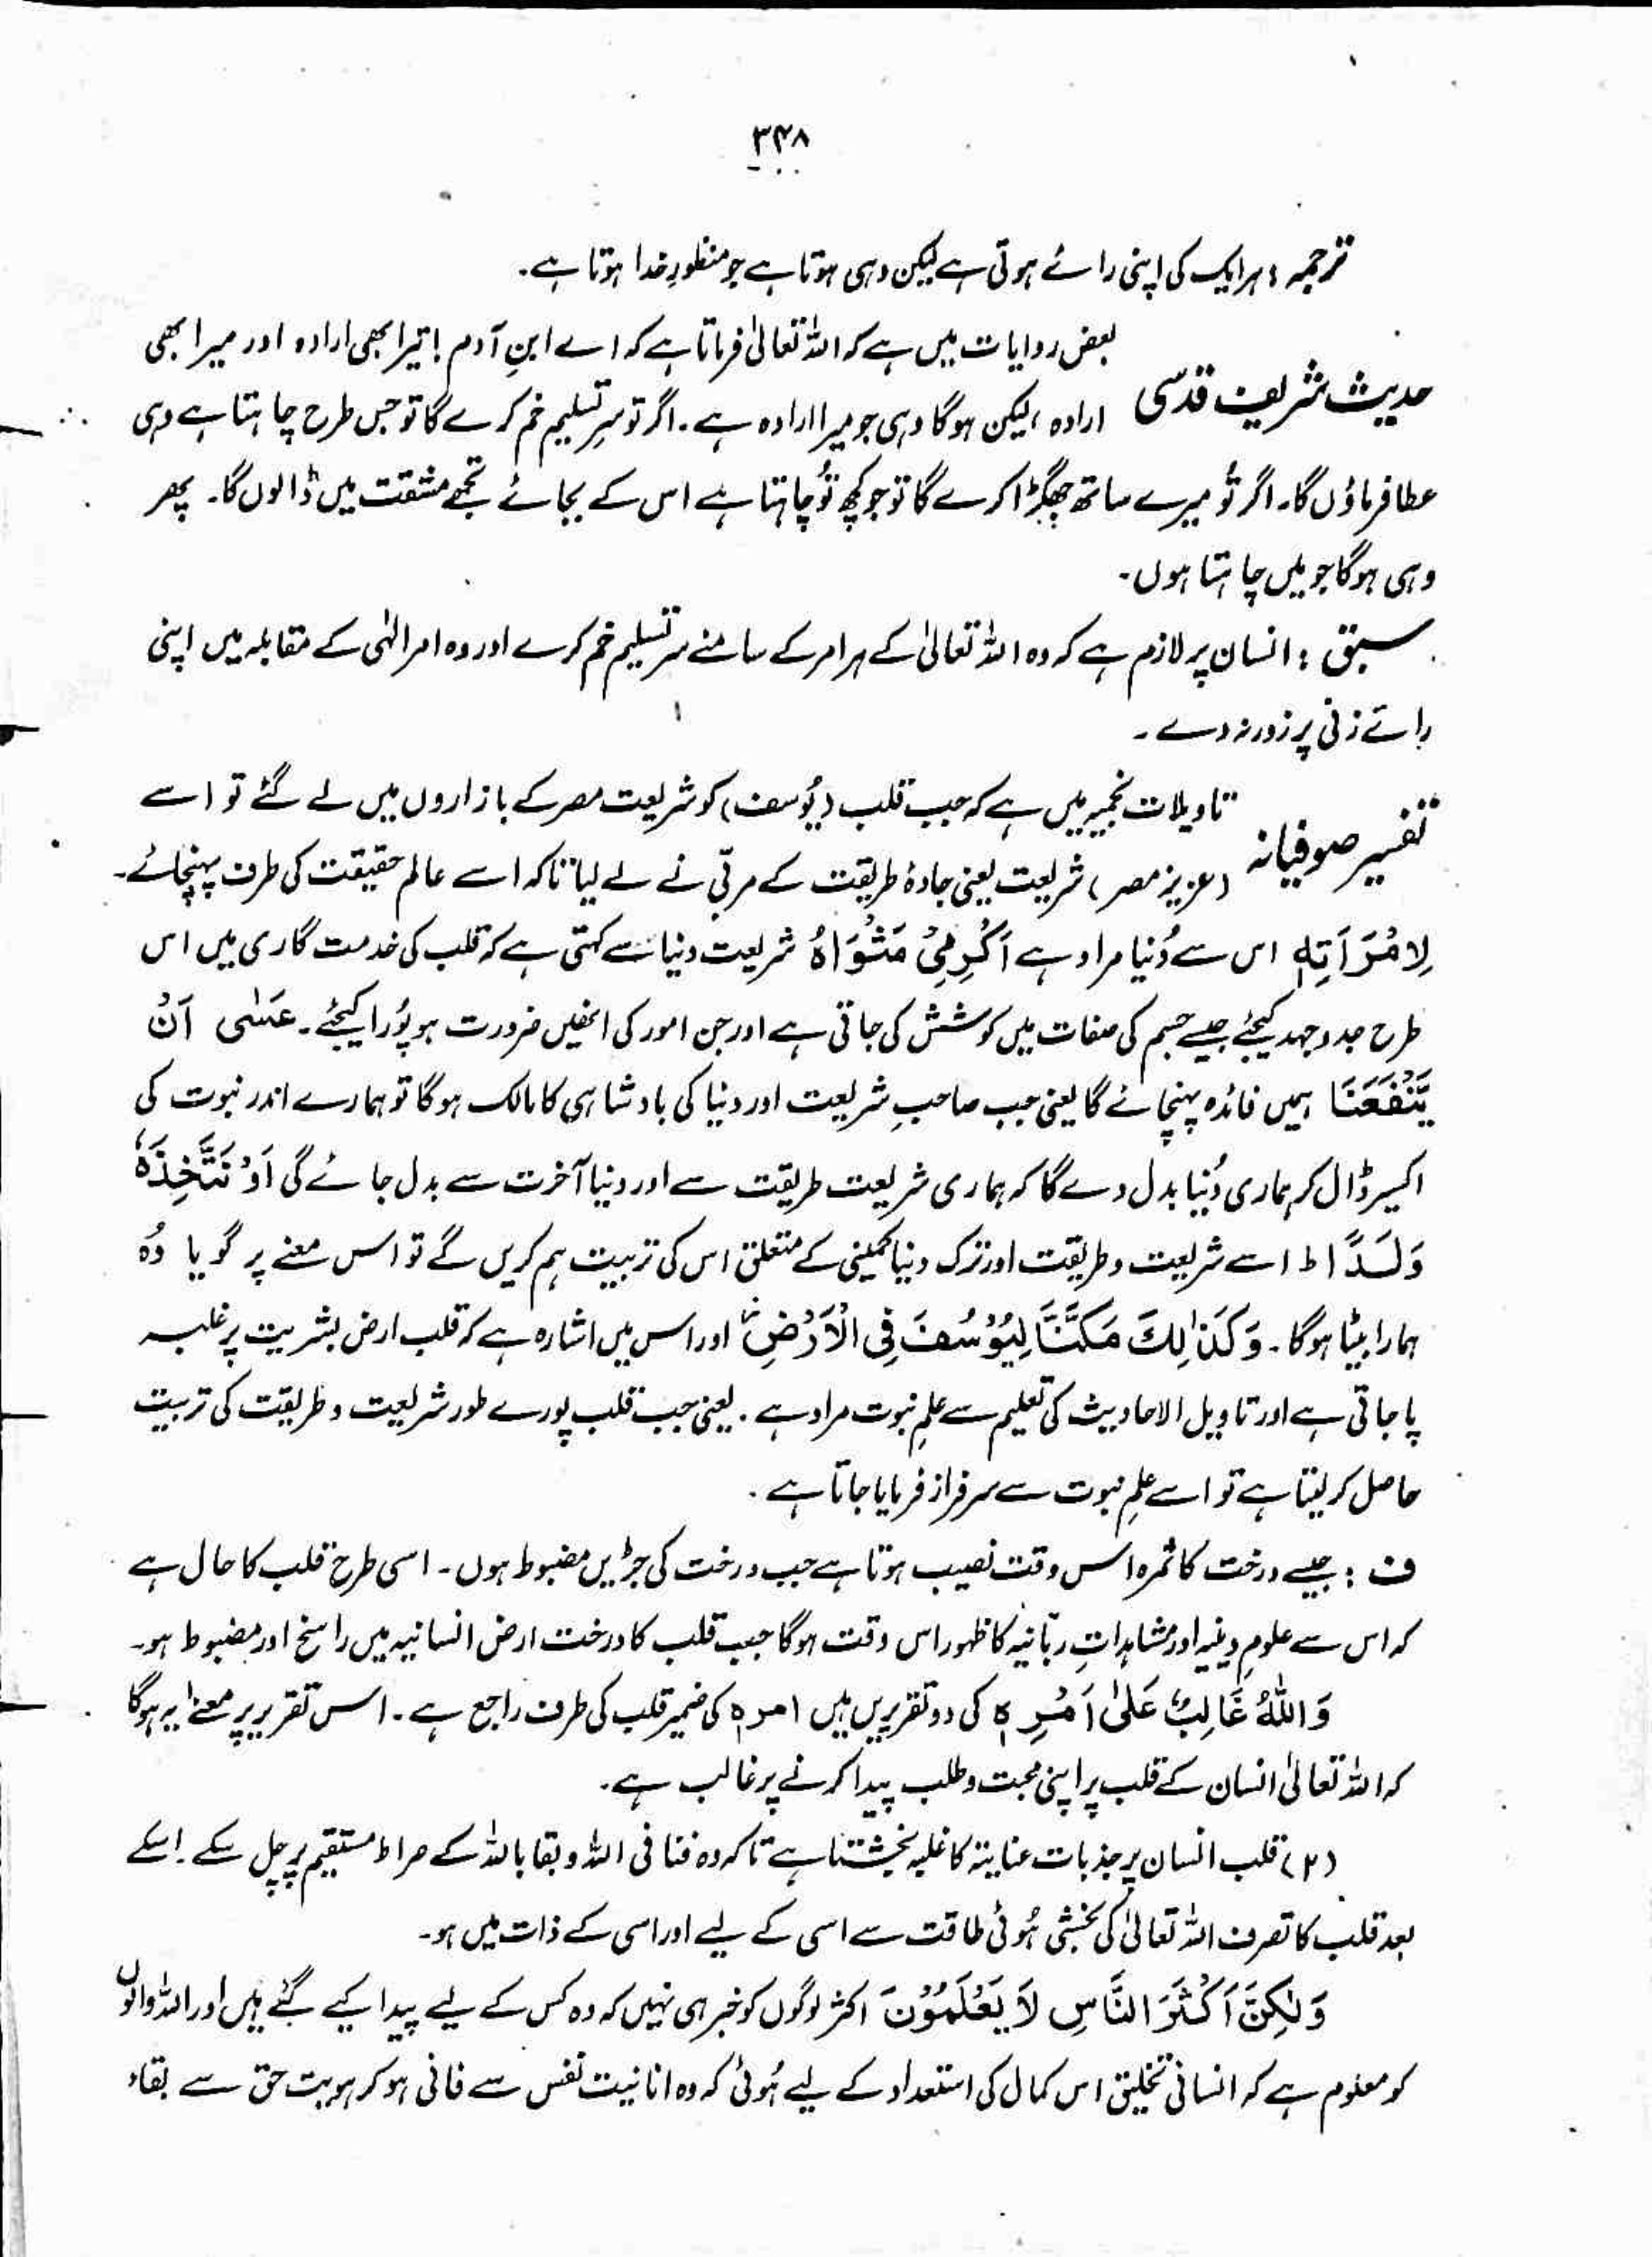 ۳۴۸
ترجمہ : ہر ایک کی اپنی رائے ہوتی ہے لیکن وہی ہوتا ہے جو منظورِ خدا ہوتا ہے۔
بعض روایات میں ہے کہ اللہ تعالیٰ فرماتا ہے کہ اے ابنِ آدم ! تیرا بھی ارادہ اور میرا بھی
حدیث شریف قدسی
ارادہ ، لیکن ہوگا وہی جو میرا ارادہ ہے۔ اگر تو سرِ تسلیم خم کرے گا تو جس طرح چاہتا ہے وہی
عطا فرماؤں گا۔ اگر تُو میرے ساتھ جھگڑا کرے گا تو جو کچھ تُو چاہتا ہے اس کے بجائے تجھے مشقت میں ڈالوں گا۔ پھر
وہی ہوگا جو میں چاہتا ہوں۔
سبق : انسان پر لازم ہے کہ وہ اللہ تعالیٰ کے ہر امر کے سامنے سرتسلیم خم کرے اور وہ امر الٰہی کے مقابلہ میں اپنی
رائے زنی پر زور نہ دے ۔
تاویلات نجمیہ میں ہے کہ جب قلب (یُوسف) کو شریعت مصر کے بازاروں میں لے گئے تو اسے
تفسیر صوفیانہ
(عزیز مصر) شریعت یعنی جادۂ طریقت کے مربّی نے لے لیا تاکہ اسے عالم حقیقت کی طرف پہنچائے۔
لِامْرَاَتِہٖ اس سے دُنیا مراد ہے اَکْرِمِیْ مَثْوَاہُ شریعت دنیا سے کہتی ہے کہ قلب کی خدمت گاری میں اس
طرح جد و جہد کیجئے جیسے جسم کی صفات میں کوشش کی جاتی ہے اور جن امور کی انھیں ضرورت ہو پُورا کیجئے۔ عَسٰی اَنْ
یَّنْفَعَنَا ہمیں فائدہ پہنچائے گا یعنی جب صاحبِ شریعت اور دنیا کی بادشاہی کا مالک ہوگا تو ہمارے اندر نبوت کی
اکسیر ڈال کر ہماری دُنیا بدل دے گا کہ ہماری شریعت طریقت سے اور دنیا آخرت سے بدل جائے گی اَوْ نَتَّخِذَہٗ
وَلَدًا ط اسے شریعت و طریقت اور ترک دنیا کمینی کے متعلق اس کی تربیت ہم کریں گے تو اس معنے پر گویا وُہ
ہمارا بیٹا ہوگا۔ وَکَذٰلِکَ مَکَّنَّا لِیُوْسُفَ فِی الْاَرْضِ اور اس میں اشارہ ہے کہ قلب ارض بشریت پر غلبہ
پا جاتی ہے اور تاویل الاحادیث کی تعلیم سے علمِ نبوت مراد ہے ۔ یعنی جب قلب پورے طور شریعت و طریقت کی تربیت
حاصل کر لیتا ہے تو اسے علمِ نبوت سے سرفراز فرمایا جاتا ہے ۔
ف : جیسے درخت کا ثمرہ اس وقت نصیب ہوتا ہے جب درخت کی جڑیں مضبوط ہوں ۔ اسی طرح قلب کا حال ہے
کہ اس سے علومِ دینیہ اور مشاہداتِ ربّانیہ کا ظہور اس وقت ہوگا جب قلب کا درخت ارض انسانیہ میں راسخ اور مضبوط ہو۔
وَاللّٰہُ غَالِبٌ عَلٰی اَمْرِہٖ کی دو تقریریں ہیں امرہ کی ضمیر قلب کی طرف راجع ہے ۔ اس تقریر پر معنے یہ ہوگا
کہ اللہ تعالیٰ انسان کے قلب پر اپنی محبت و طلب پیدا کرنے پر غالب ہے۔
(۲) قلب انسان پر جذبات عنایتہ کا غلبہ بخشتا ہے تاکہ وہ فنا فی اللہ و بقا باللہ کے صراط مستقیم پر چل سکے ۔ اسکے
بعد قلب کا تصرف اللہ تعالیٰ کی بخشی ہُوئی طاقت سے اسی کے لیے اور اسی کے ذات میں ہو۔
وَلٰکِنَّ اَکْثَرَ النَّاسِ لَا یَعْلَمُوْنَ اکثر لوگوں کو خبر ہی نہیں کہ وہ کس کے لیے پیدا کیے گئے ہیں اور اللہ والوں
کو معلوم ہے کہ انسانی تخلیق اس کمال کی استعداد کے لیے ہُوئی کہ وہ انانیت نفس سے فانی ہو کر ہویت حق سے بقاء